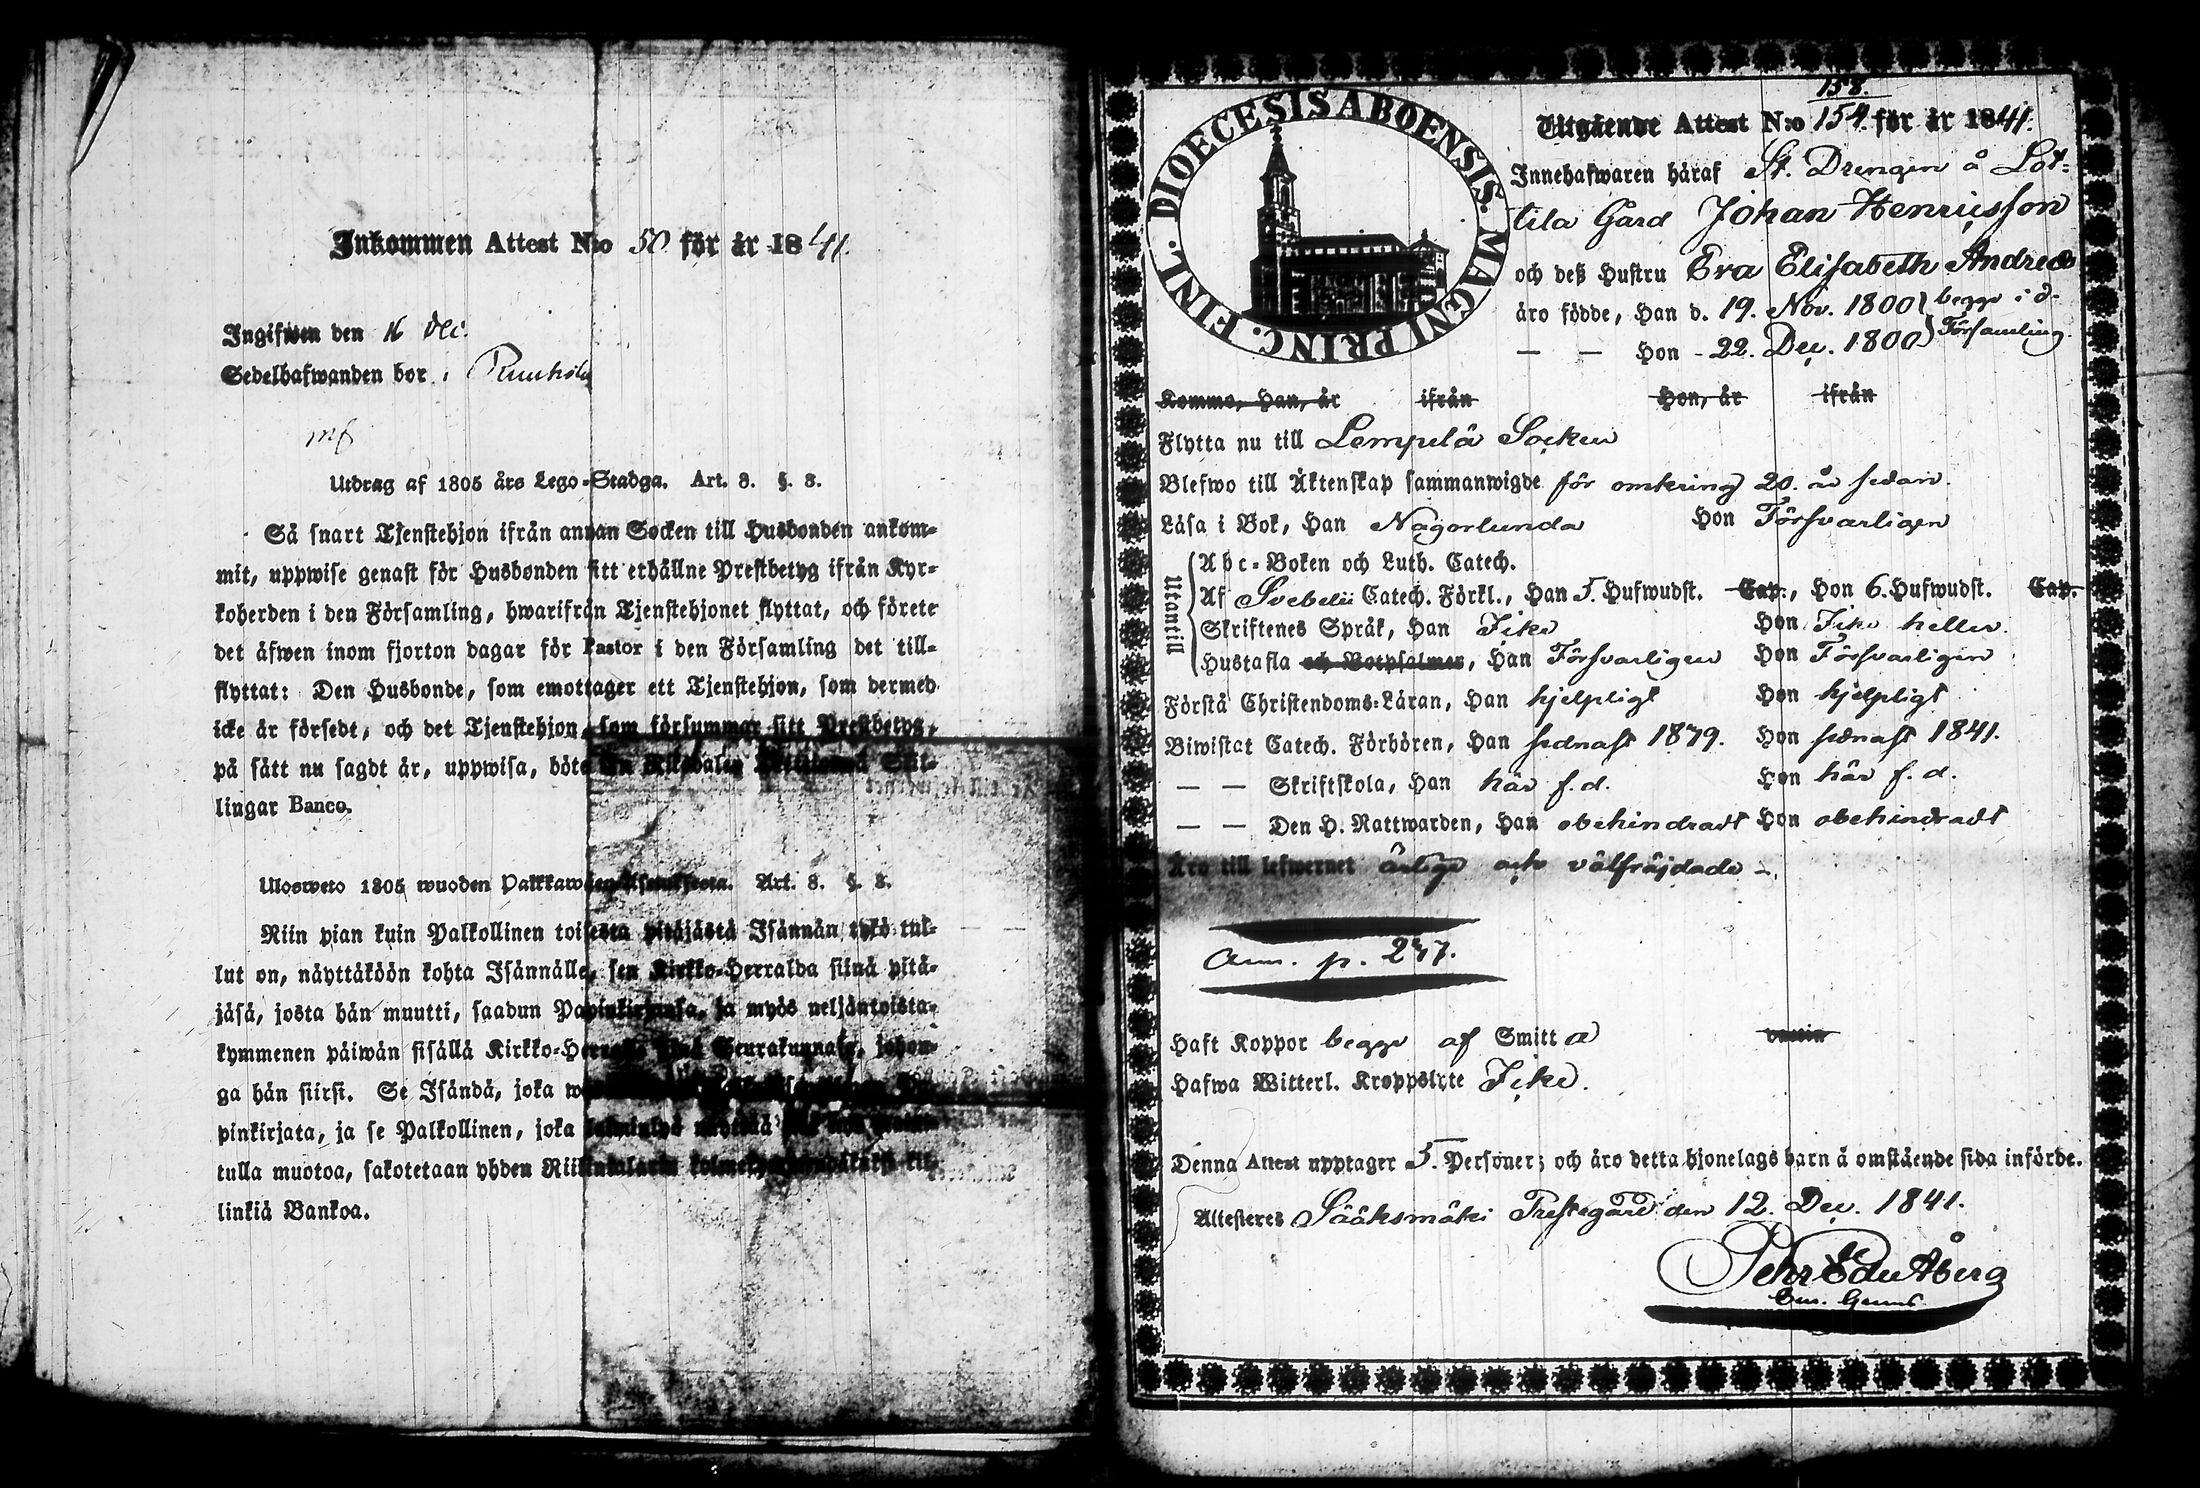 Inkommen Attest N:o 50 för år 1841.
Ingifwen den 16 Dec.
Sedelhafwanden bor i
Utdrag af 1805 års Lego-Stadga. Art. 8. §. 8.
Så snart Tjenstehjon ifrån annan Socken till Husbonden ankom-
mit, uppwise genast för Husbonden sitt erhållne Prestbetyg ifrån Kyr-
koherden i den Församling, hwarifrån Tjenstehjonet flyttat, och förete
det äfwen inom fjorton dagar för Pastor i den Församling det till-
flyttat: Den Husbonde, som emottager ett Tjenstehjon, som dermed
icke är försedt, och det Tjenstehjon, som försummar sitt Prestbetyg,
på sätt nu sagdt är, uppwisa, böte En Riksdaler Skil-
lingar Banco.
Ulosweto 1805 wuoden Palkkawäen Asetuksesta. Art. 8. §. 8.
Niin pian kuin Palkollinen toisesta pitäjästä Isännän tykö tul-
lut on, näyttäköön kohta Isännälle, sen Kirkko-Herralda siinä pitä-
jäsä, josta hän muutti, saadun Papinkirjansa, ja myös neljäntoista-
kymmenen päiwän sisällä Kirkko-Herralle siinä Seurakunnasa, johon-
ga hän siirsi. Se Isändä, joka
pinkirjata, ja se Palkollinen, joka
tulla muotoa, sakotetaan yhden Riikintalarin
linkiä Bankoa.
DIOECESIS ABOENSIS. MAGNI PRINC. FINL.
158.
Utgående Attest N:o 154. för år 1841.
Innehafwaren häraf St. Drengen å Lot-
tila Gård Johan Henricsson
och deß Hustru Eva Elisabeth Andreæ
äro födde, Han d. 19. Nov. 1800 begge i d.
— — Hon - 22. Dec. 1800 Församling.
Kommo, Han, år ifrån Hon, år ifrån
Flytta nu till Lempelä Socken
Blefwo till Äktenskap sammanwigde för omkring 20. år sedan.
Läsa i Bok, Han Någorlunda Hon Försvarligen
Utantill
Abc-Boken och Luth. Catech.
Af Svebelii Catech. Förkl., Han 5. Hufwudst. Cap., Hon 6. Hufwudst. Cap.
Skriftenes Språk, Han Icke Hon Icke heller.
Hustafla och Botpsalmer, Han Försvarligen Hon Försvarligen
Förstå Christendoms-Läran, Han hjelpligt Hon hjelpligt
Biwistat Catech. Förhören, Han sednast 1839. Hon sednast 1841.
— — Skriftskola, Han här f. d. Hon här f. d.
— — Den H. Nattwarden, Han obehindradt Hon obehindradt
Äro till lefwernet ärlige och välfräjdade
Ann. p. 237.
Haft Koppor begge af Smitta vaccin
Hafwa Witterl. Kroppslyte Icke.
Denna Attest upptager 5. Personer; och äro detta hjonelags barn å omstående sida införde.
Attesteres Sääksmäki Prestegård den 12. Dec. 1841.
Pehr Edv Åberg